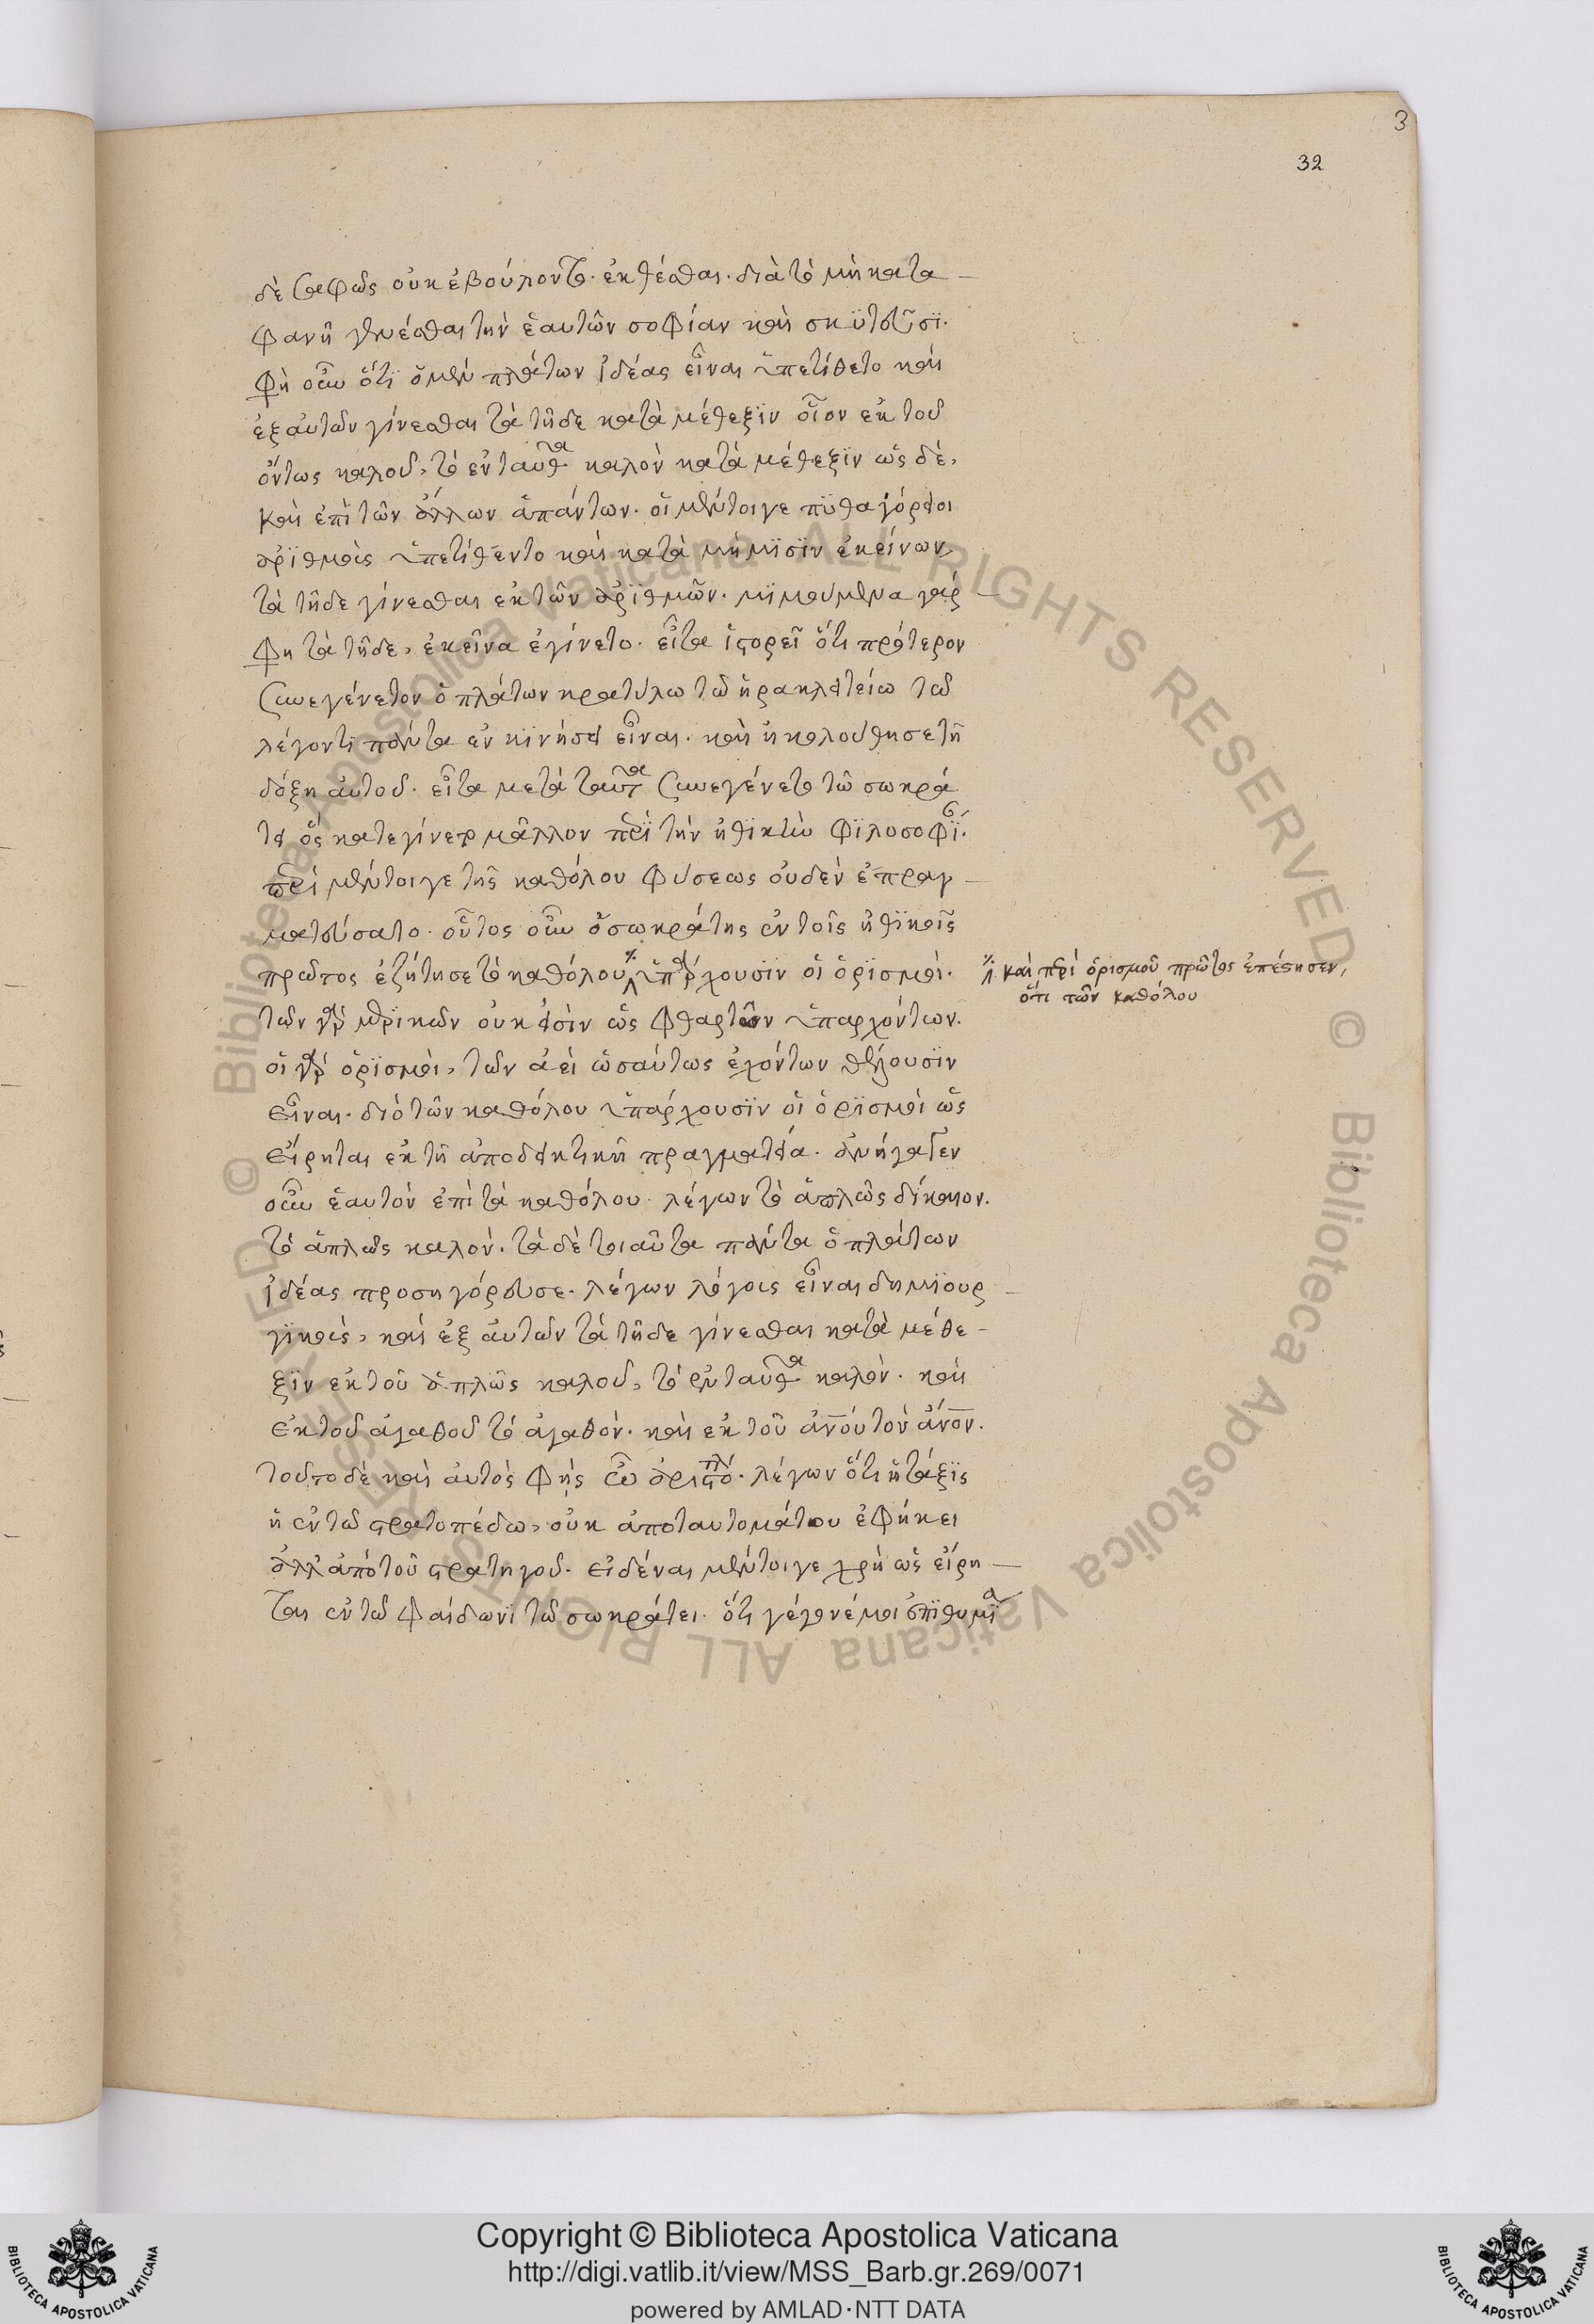 3
32
δὲ σαφῶς οὐκ ἐβούλοντο. ἐκθέσθαι. διὰ τὸ μὴ κατα
φανῆ γενέσθαι τὴν ἑαυτῶν σοφίαν καὶ σκϋτεῦσϊ.
φὴ οὖν ὅτϊ ὁ μὲν πλάτων ἰδέας εἶναι ὑπετίθετο καὶ
ἐξ αὐτῶν γίνεσθαι τὰ τῆδε κατὰ μέθεξϊν οἷον ἐκ τοῦ
ὄντως καλοῦ, τὸ ἐνταῦθα καλὸν κατὰ μέθεξϊν ὡς δὲ,
καὶ ἐπὶ τῶν ἄλλων ἁπάντων. οἱ μέντοιγε πϋθαγόρειοι
ἀρϊθμοὺς ὑπετίθεντο καὶ κατὰ μήμϊσϊν ἐκείνων,
τὰ τῆδε γίνεσθαι ἐκ τῶν ἀρϊθμῶν. μϊμούμενα γὰρ
φη τὰ τῆδε, ἐκεῖνα ἐγίνετο. εἶτα ἱστορεῖ ὅτι πρότερον
συνεγένετον ὁ πλάτων κρατύλω τῶ ἡρακλειτείω τῶ
λέγοντϊ πάντα ἐν κϊνήσει εἶναι. καὶ ἠκολούθησε τῆ
δόξη αὐτοῦ. εἶτα μετὰ ταῦτα συνεγένετο τῶ σωκρά
τει ὅς κατεγίνετο μᾶλλον περὶ τὴν ἠθϊκὴν φϊλοσοφΐ.
περὶ μέντοιγε τῆς καθόλου φύσεως οὐδὲν ἐπραγ
ματεύσατο. οὗτος οὖν ὁ σωκράτης ἐν τοῖς ἠθϊκοῖς
πρῶτος ἐζήτησε τὸ καθόλου ὑπάρχουσϊν οἱ ὁρϊσμοὶ.
καὶ περὶ ὁρισμοῦ πρῶτος ἐπέστησεν,
ὅτι τῶν καθόλου
τῶν γὰρ μερϊκῶν οὐκ εἰσὶν ὡς φθαρτῶν ὑπαρχόντων.
οἱ γὰρ ὁρϊσμοὶ, τῶν ἀεὶ ὡσαύτως ἐχόντων θέλουσϊν
εἶναι. διὸ τῶν καθόλου ὑπάρχουσϊν οἱ ὁρϊσμοὶ ὡς
εἴρηται ἐκ τῆ ἀποδεικτικῆ πραγματεία. ἀνήγαγεν
οὖν ἑαυτὸν ἐπὶ τὰ καθόλου. λέγων τὸ ἁπλῶς δίκαιον.
τὸ ἁπλῶς καλὸν. τὰ δὲ τοιαῦτα πάντα ὁ πλάτων
ἰδέας προσηγόρευσε. λέγων λόγους εἶναι δημϊουρ
γϊκοὺς, καὶ ἐξ αὐτῶν τὰ τῆδε γίνεσθαι κατὰ μέθε
ξϊν ἐκ τοῦ ἁπλῶς καλοῦ, τὸ ἐνταῦθα καλὸν. καὶ
ἐκ τοῦ ἀγαθοῦ τὸ ἀγαθὸν. καὶ ἐκ τοῦ ἀνου τὸν ἄνον.
τοῦτο δὲ καὶ αὐτὸς φὴς ὦ ἀριστό. λέγων ὅτι ἡ τάξϊς
ἡ ἐν τῶ στρατοπέδω, οὐκ ἀποταυτομάτου ἐφήκει
ἀλλ' ἀπὸ τοῦ στρατηγοῦ. εἰδέναι μέντοιγε χρὴ ὡς εἴρη
ται ἐν τῶ φαίδωνϊ τῶ σωκράτει. ὅτι γέγονέ μοι ἐπϊθυμϊα
Copyright © Biblioteca Apostolica Vaticana
http://digi.vatlib.it/view/MSS_Barb.gr.269/0071
powered by AMLAD·NTT DATA